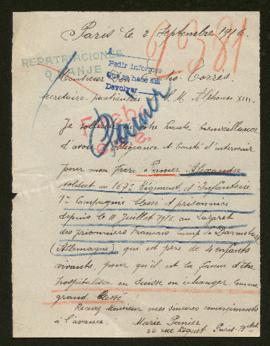 Paris le 2 Septembre 1916
9381
REPATRIACIONES
O CANJE
Pedir informes
Devolver
Monsieur Don Torres
secrétaire particulier M. Alphonse XIII
Je sollicite haute bienveillance
d'avoir et bonté d'intervenir
Fecho
pour mon frère Panier Alexandre
soldat au 167e Régiment d'Infanterie
1re Compagnie blessé et prisonnier
depuis le 8 Juillet 1915 au Lazaret
des prisonniers français camp de Darmstadt
(Allemagne) qui est père de 4 enfants
vivants, pour qu'il ait la faveur d'être
hospitalisé en Suisse ou échangé comme
grand blessé
Recevez Monsieur mes sincères remerciements
à l'avance.
Marie Panier
rue Paris